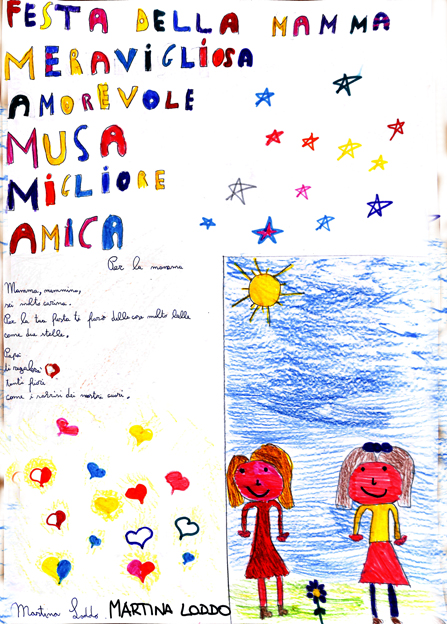 FESTA DELLA MAMMA
MERAVIGLIOSA
AMOREVOLE
MUSA
MIGLIORE
AMICA
Per la mamma
Mamma, mammina,
sei molto carina.
Per la tua festa ti farò delle cose molto belle
come due stelle.
Papà
di regalerà
tanti fiori
come i battiti dei nostri cuori.
Martina Loddo MARTINA LODDO